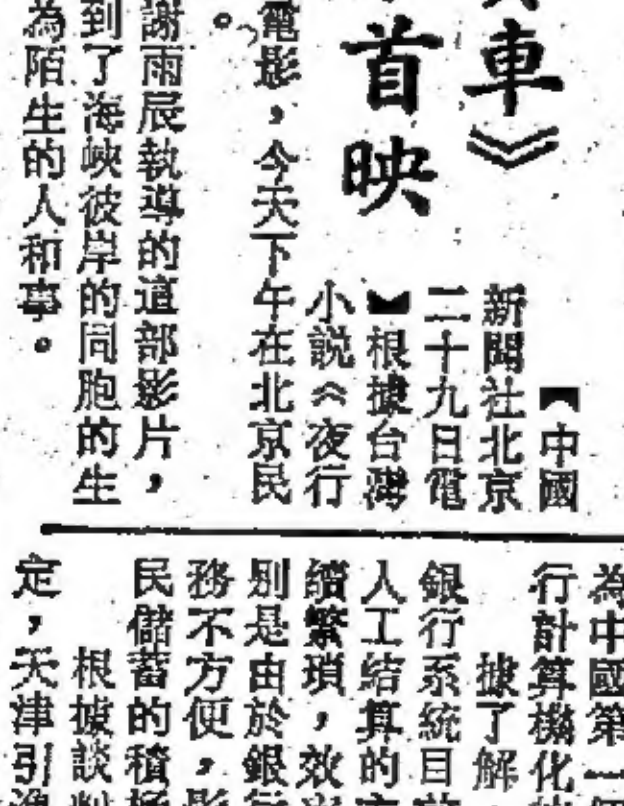 車》
首映
【中國
新聞社北京
二十九日電
】根據台灣
小說《夜行
電影，今天下午在北京民
。
謝雨辰執導的這部影片，
到了海峽彼岸的同胞的生
為陌生的人和事。
為中國第一
行計算機化
據了解
銀行系統目
人工結算的
續繁瑣，效
別是由於銀行
務不方便，影
民儲蓄的積極
根據談判
定，天津引進